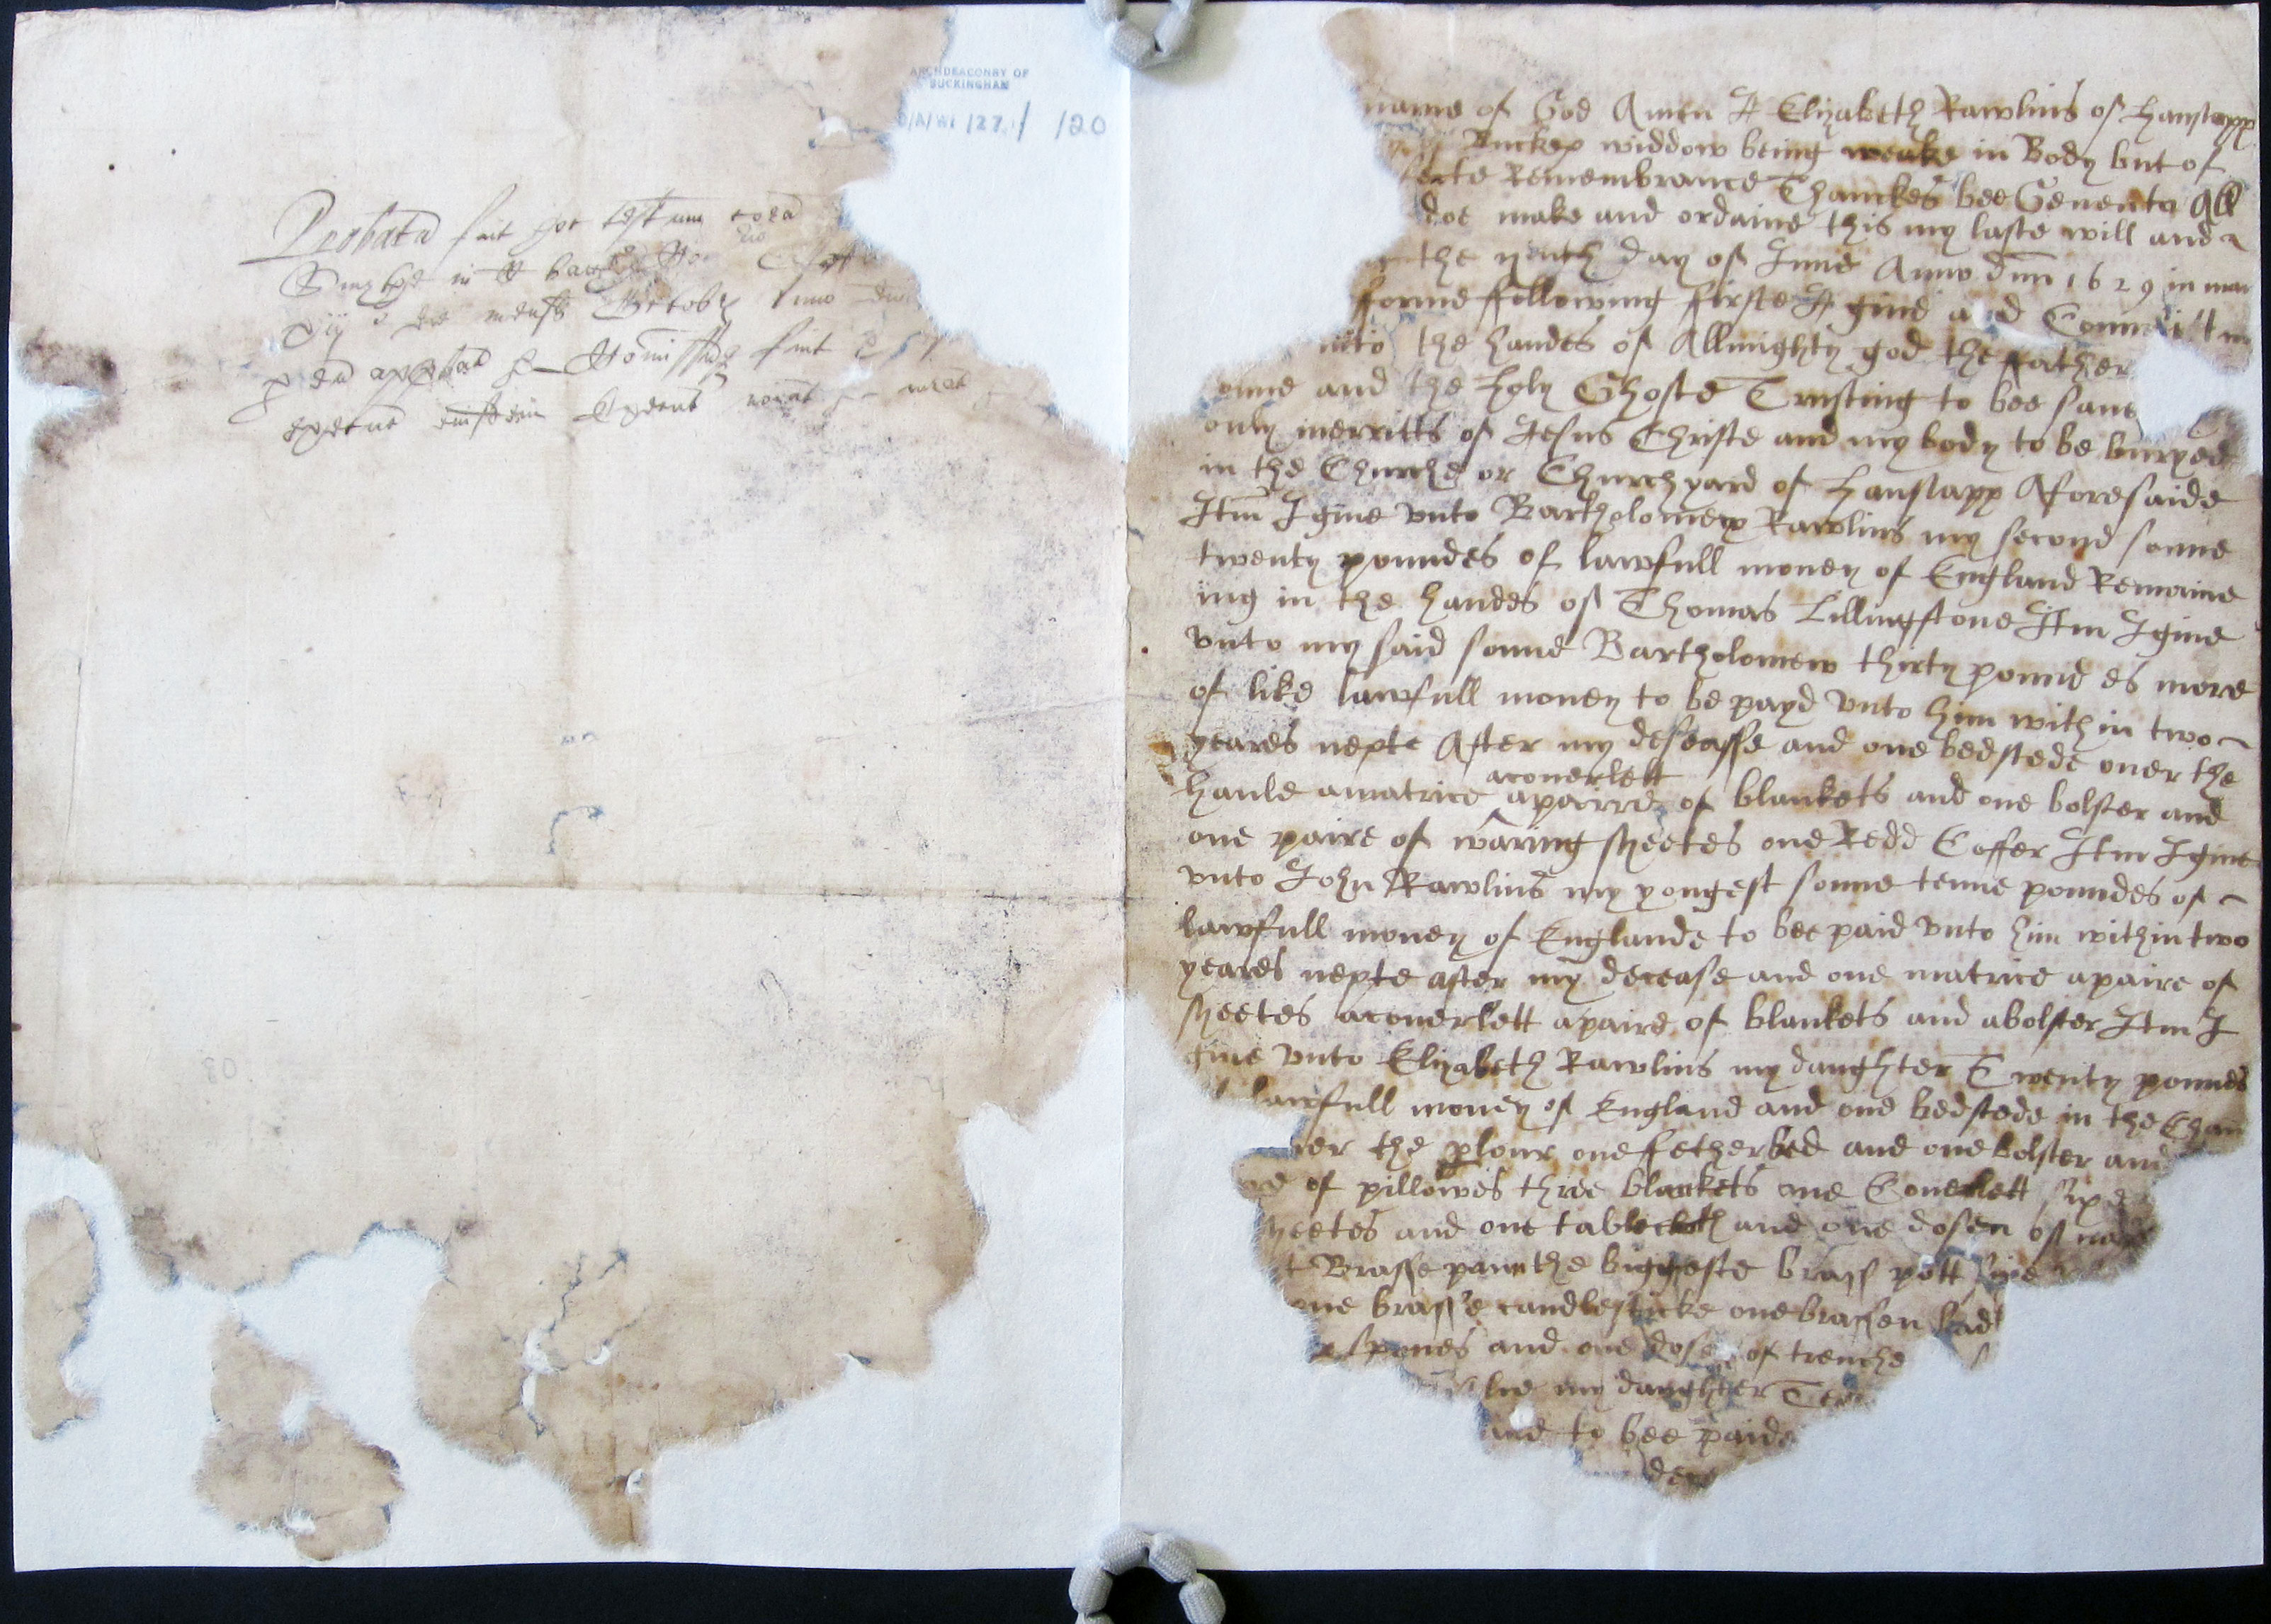 ARCHDEACONRY OF
BUCKINGHAM
D/A/Wf /27/ 120
Probatu fuit hoc testum cora
mensis Octobr Anno
name of God Amen I Elizabeth Rawlins of Hanslapp
Buck widdow being weake in Body but of
fecte Remembrance Thanckes bee Geven to All
doe make and ordaine this my laste will and
the day of June Anno dni 1629 in man
forme following firste I give and Commit
into the handes of Allmighty god the ffather
onne and the Holy Ghoste Trusting to bee save
only merritts of Jesus Christe and my body to be buryed
in the Churche or Church yard of Hanslapp Aforesaide
Itm I give vnto Bartholomew Rawlins my second sonne
twenty poundes of lawfull money of England Remaine
ing in the handes of Thomas Lillingstone Itm I give
vnto my said sonne Bartholomew thirty pound es more
of like lawfull money to be payd vnto him with in two
yeares nexte After my deseasse and one bedstede over the
haule a matrice acoverlett apairre of blankets and one bolster and
one paire of waring sheetes one Redd Coffer Itm I give
vnto John Rawlins my yongest sonne tenne poundes of
lawfull money of Englande to bee paid vnto him within two
yeares nexte after my decease and one matrice apaire of
sheetes acoverlett apaire of blankets and abolster Itm I
give vnto Elizabeth Rawlins my daughter Twenty poundes
lawfull money of England and one bedstede in the Cham
ver the plour one fetherbed and one bolster and
re of pillowes three blankets one Coverlett sixe
heetes and one tablecloth and one dosen of na
t Brasse pann the biggeste brass pott five
one brasse candlesticke one brassen Lad
spones and one dosen of trenche
lce my daughter Tenn
and to bee paide
dece